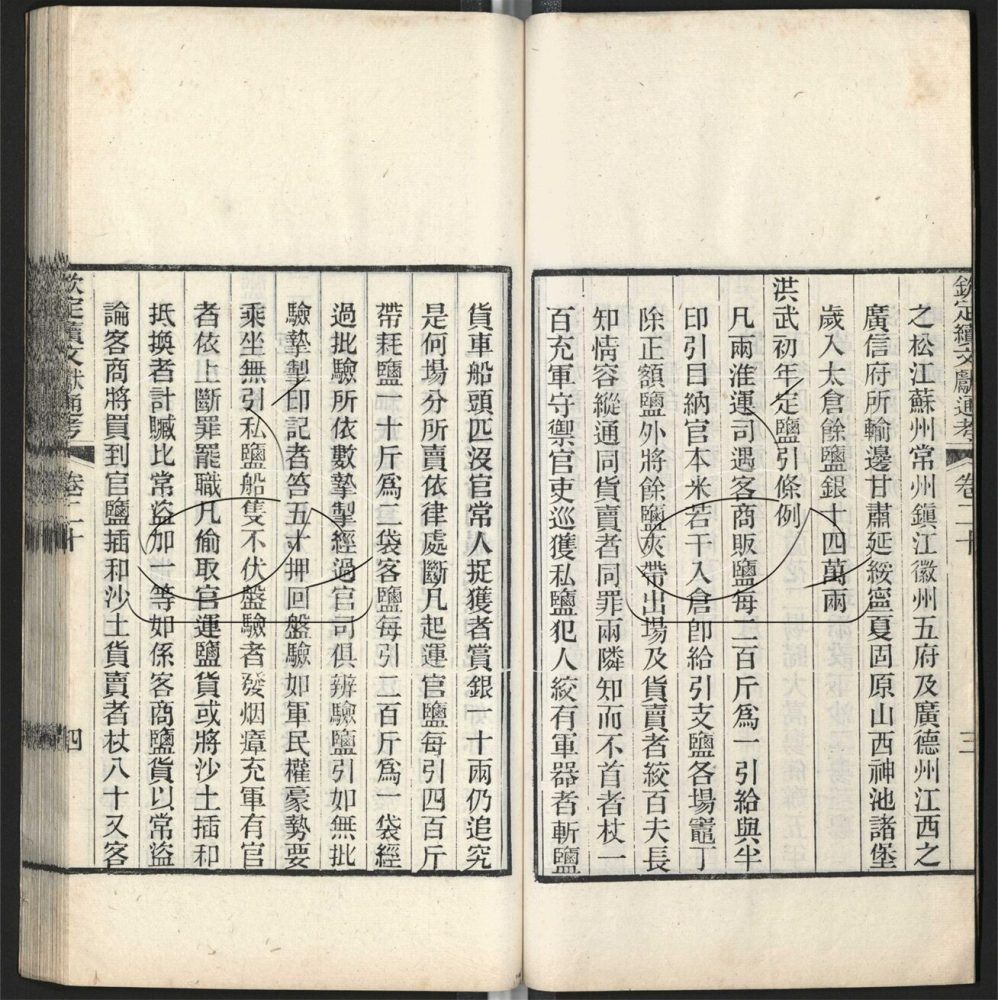 欽定續文獻通考 卷二十 三
之松江蘇州常州鎮江徽州五府及廣德州江西之
廣信府所輸邊甘肅延綏寧夏固原山西神池諸堡
歲入太倉餘鹽銀十四萬兩
洪武初年定鹽引條例
凡兩淮運司遇客商販鹽每二百斤爲一引給與半
印引目納官本米若干入倉卽給引支鹽各場竈丁
除正額鹽外將餘鹽夾帶出場及貨賣者絞百夫長
知情容縱通同貨賣者同罪兩隣知而不首者杖一
百充軍守禦官吏巡獲私鹽犯人絞有軍器者斬鹽
貨車船頭匹沒官常人捉獲者賞銀一十兩仍追究
是何場分所賣依律處斷凡起運官鹽每引四百斤
帶耗鹽一十斤爲二袋客鹽每引二百斤爲一袋經
過批驗所依數摯掣經過官司俱辨驗鹽引如無批
驗摯掣印記者笞五十押回盤驗如軍民權豪勢要
乘坐無引私鹽船隻不伏盤驗者發烟瘴充軍有官
者依上斷罪罷職凡偷取官運鹽貨或將沙土插和
抵換者計贓比常盜加一等如係客商鹽貨以常盜
論客商將買到官鹽插和沙土貨賣者杖八十又客
欽定續文獻通考 卷二十 四